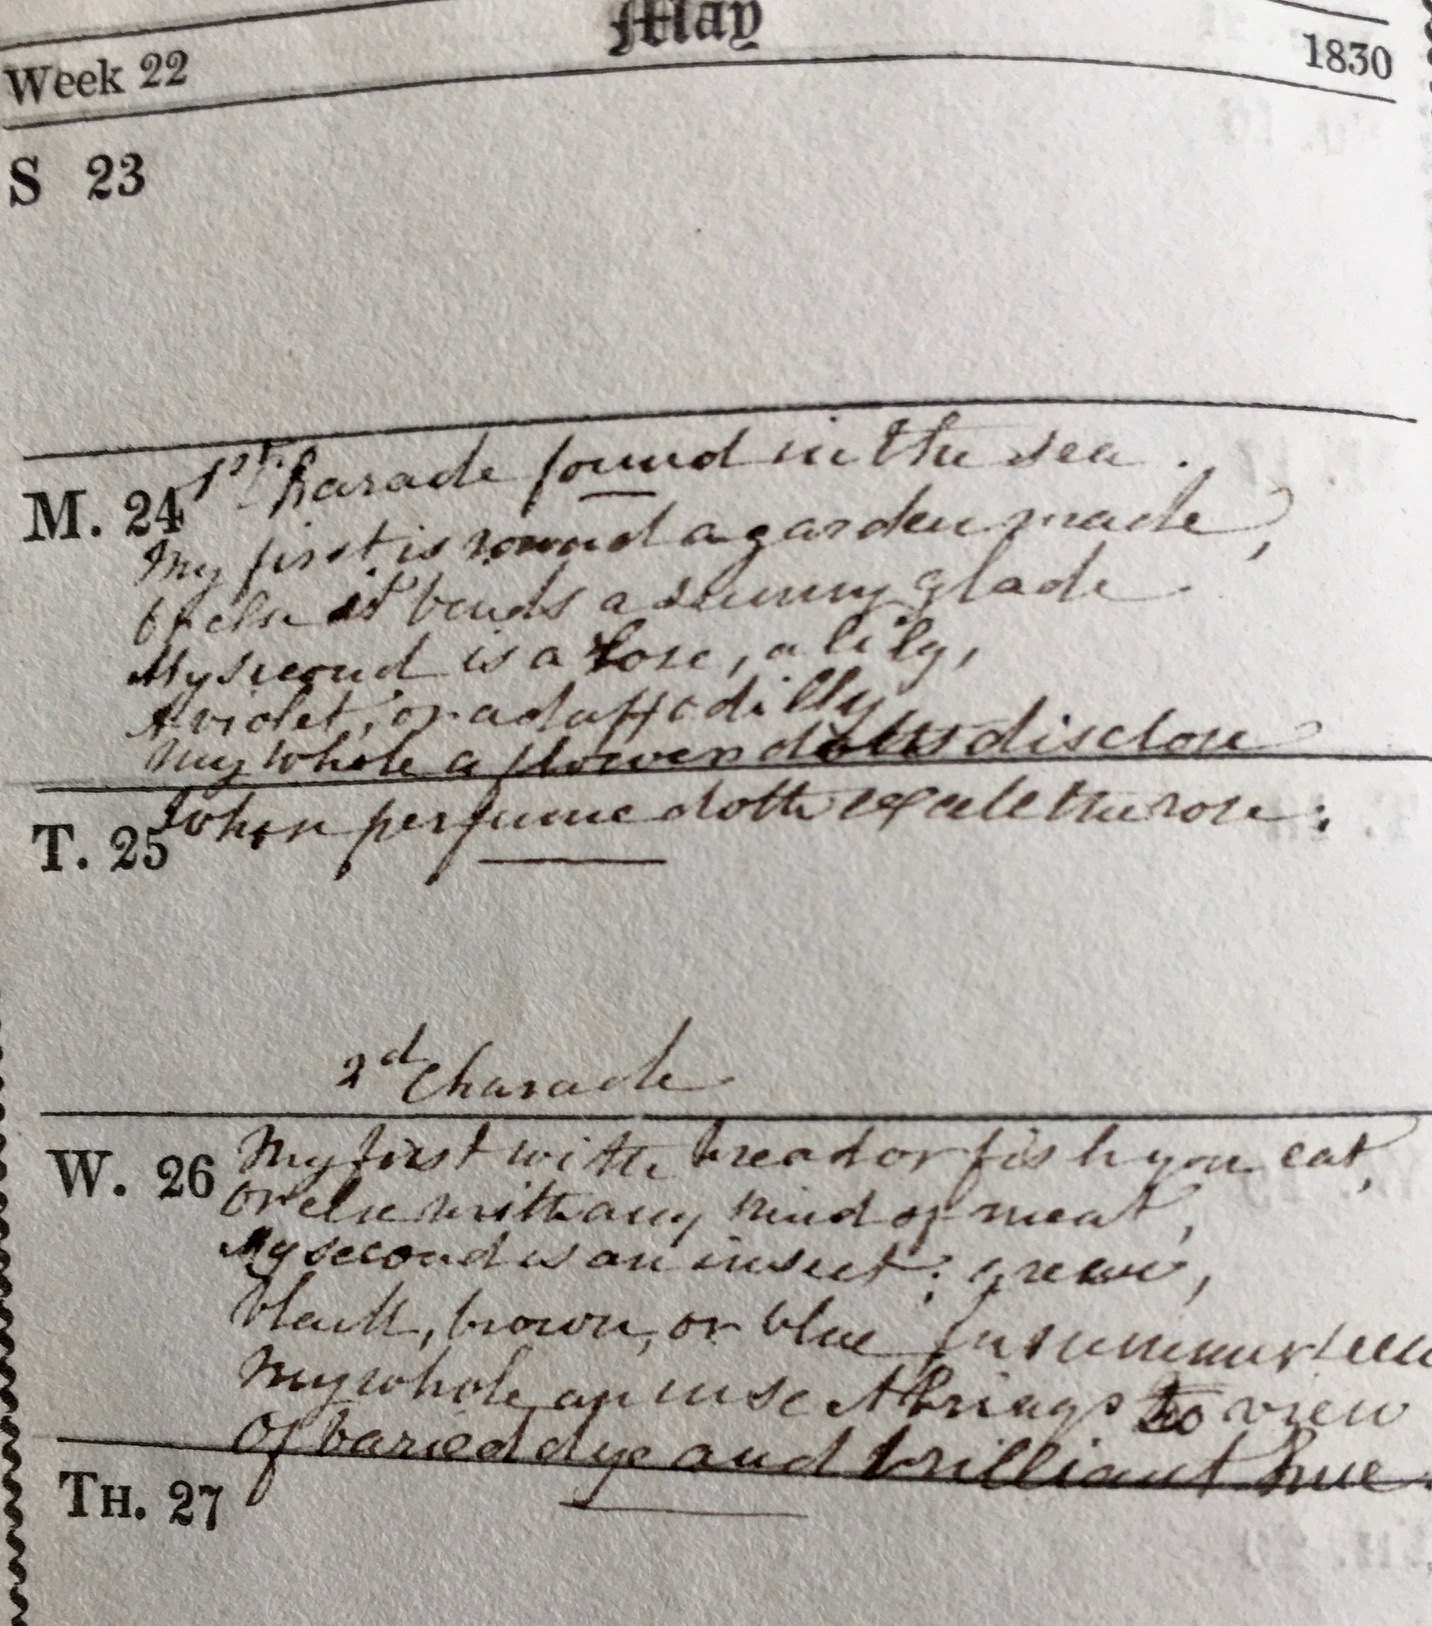 May
Week 22
1830
S 23
M. 24
1st Charade found in the sea.
My first is round a garden made,
Or else it bends a sunny glade
My second is a rose, a lily,
A violet, or a daffodilly
My whole a flower doth disclose
T. 25
Whose perfume doth excel the rose.
2d Charade
W. 26
My first with bread or fish you eat,
Or else with any kind of meat,
My second is an insect; green,
black, brown, or blue in summer seen
My whole an insect brings to view
Of varied dye and brilliant hue.
TH. 27